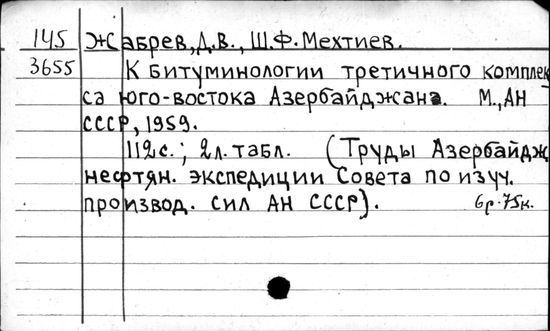 145 Жабрев, Д.В., Ш.Ф. Мехтиев.
3655 К битуминологии третичного комплек
са юго-востока Азербайджана. М., АН
СССР, 1959.
112 с.; 2 л. табл. (Труды Азербайдж.
нефтян. экспедиции Совета по изуч.
производ. сил АН СССР).
6р. 75к.